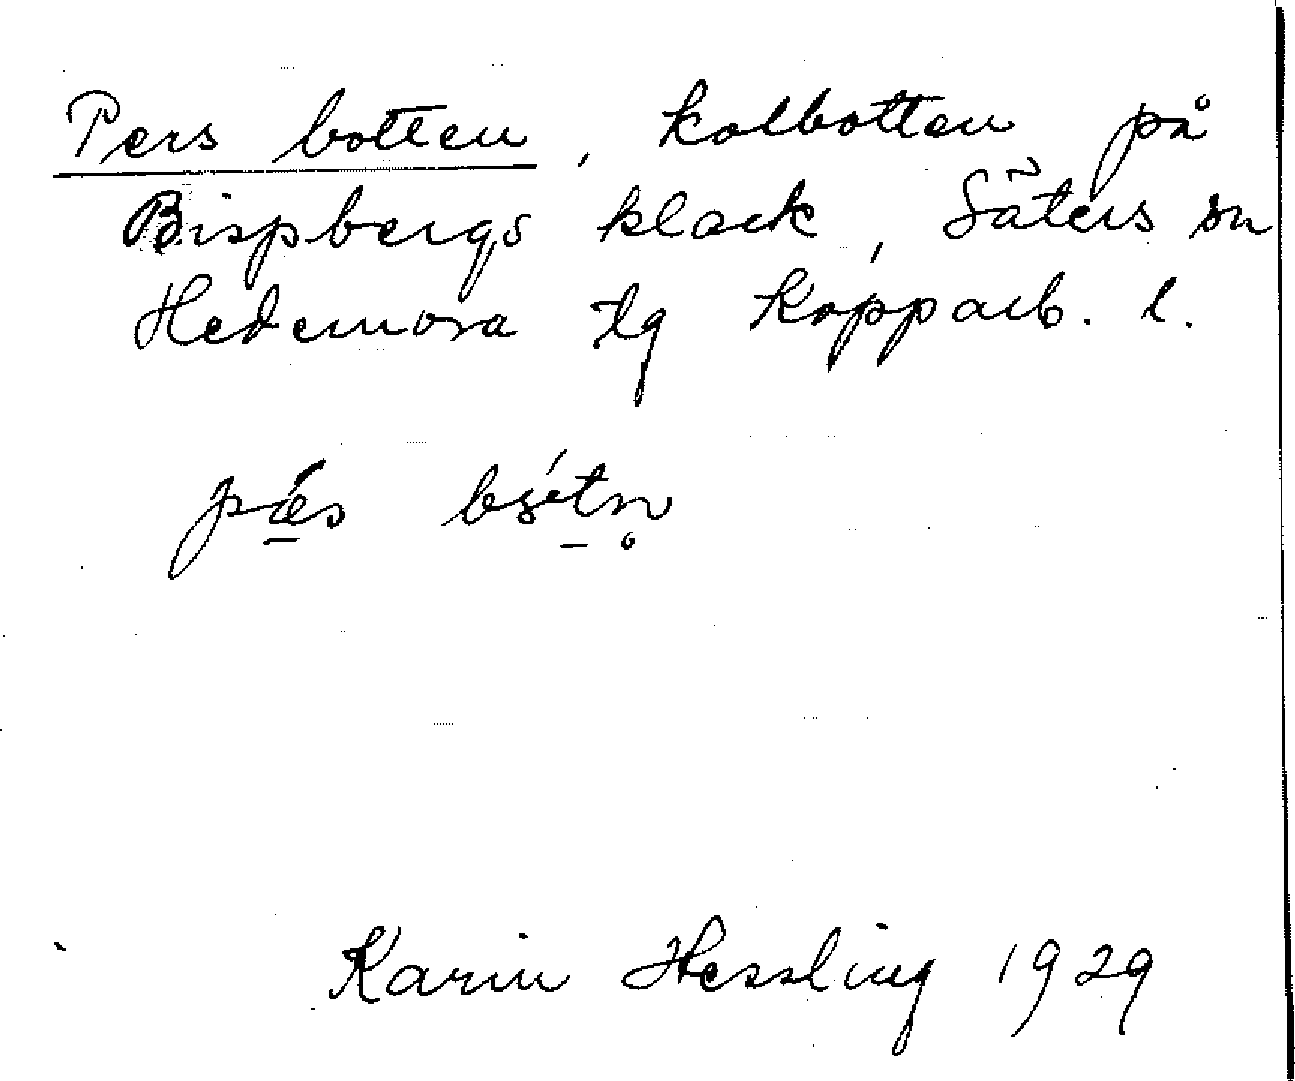 Pers botten, kolbotten på
Bispbergs klack, Säters sn
Hedemora tg Kopparb. l.
Karin Hessling 1929